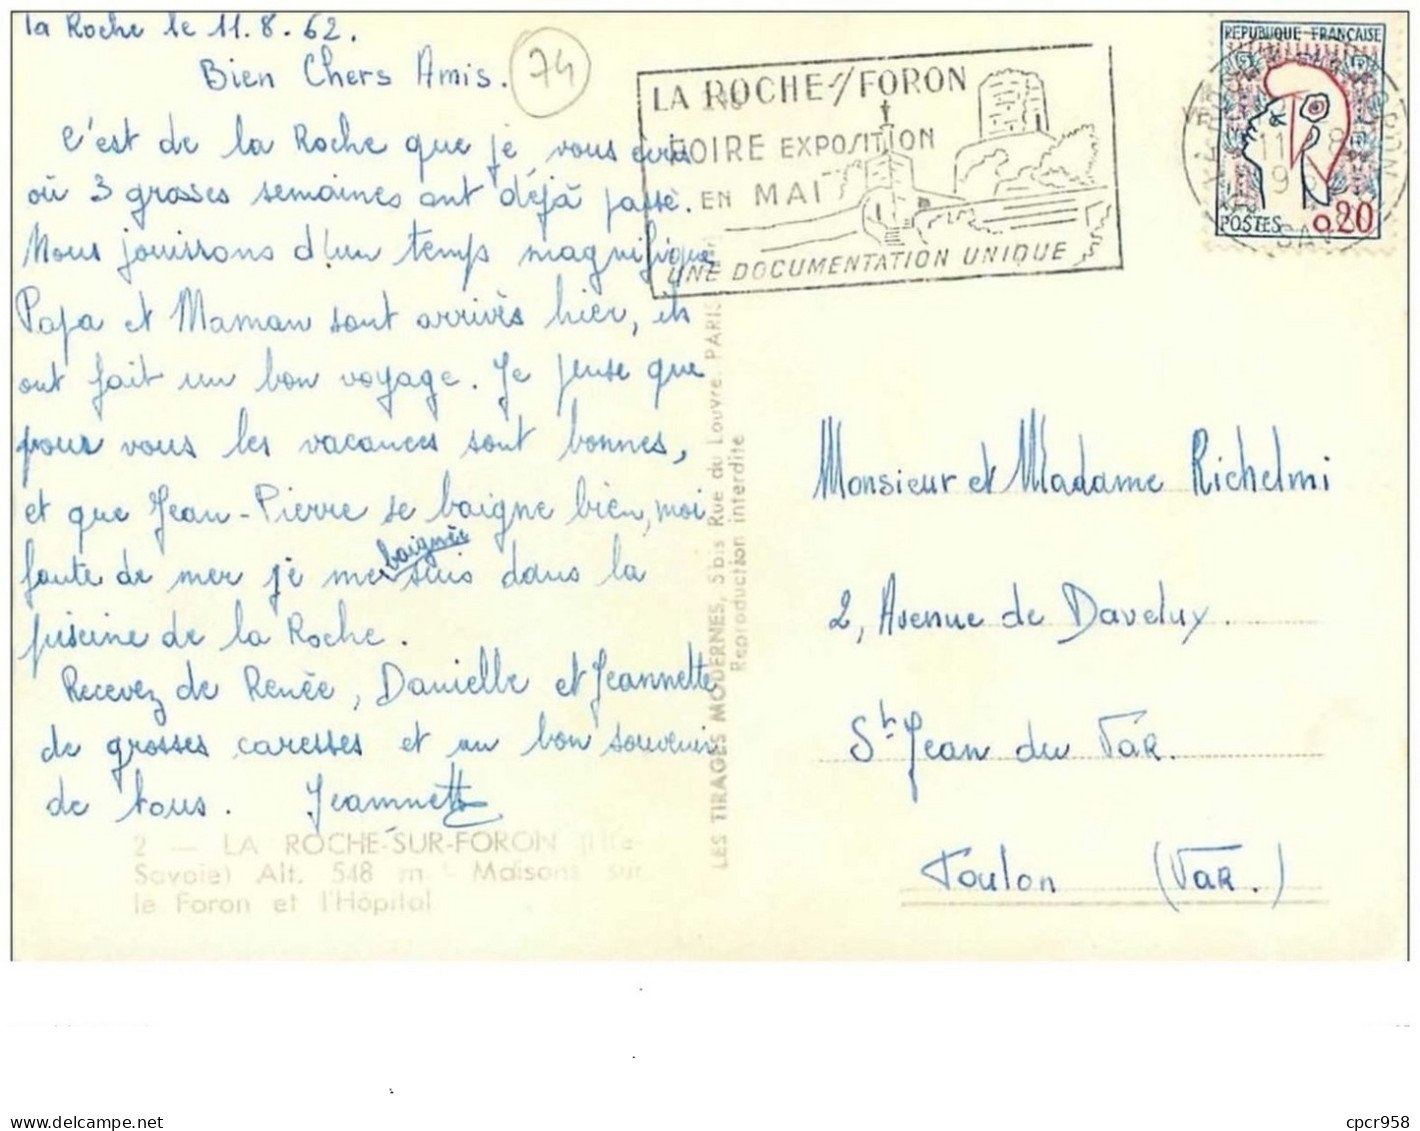 la Roche le 11.8.62.
Bien Chers Amis.
74
C'est de la Roche que je vous écris
où 3 grosses semaines ont déjà passé.
Nous jouissons d'un temps magnifique
Papa et Maman sont arrivés hier, ils
ont fait un bon voyage. Je pense que
pour vous les vacances sont bonnes,
et que Jean-Pierre se baigne bien, moi
faute de mer je me suis baignée dans la
piscine de la Roche.
Recevez de Renée, Danielle et Jeannette
de grosses caresses et un bon souvenir
de tous. Jeannette
2 — LA ROCHE-SUR-FORON (Hte-
Savoie) Alt. 548 m. - Maisons sur
le Foron et l'Hôpital
LES TIRAGES MODERNES, 5 bis Rue du Louvre. PARIS
Reproduction interdite
LA ROCHE S/FORON
FOIRE EXPOSITION
EN MAI
UNE DOCUMENTATION UNIQUE
REPUBLIQUE FRANÇAISE
POSTES 0,20
Monsieur et Madame Richelmi
2, Avenue de Daveluy.
St Jean du Var.
Toulon (Var.)
cpcr958